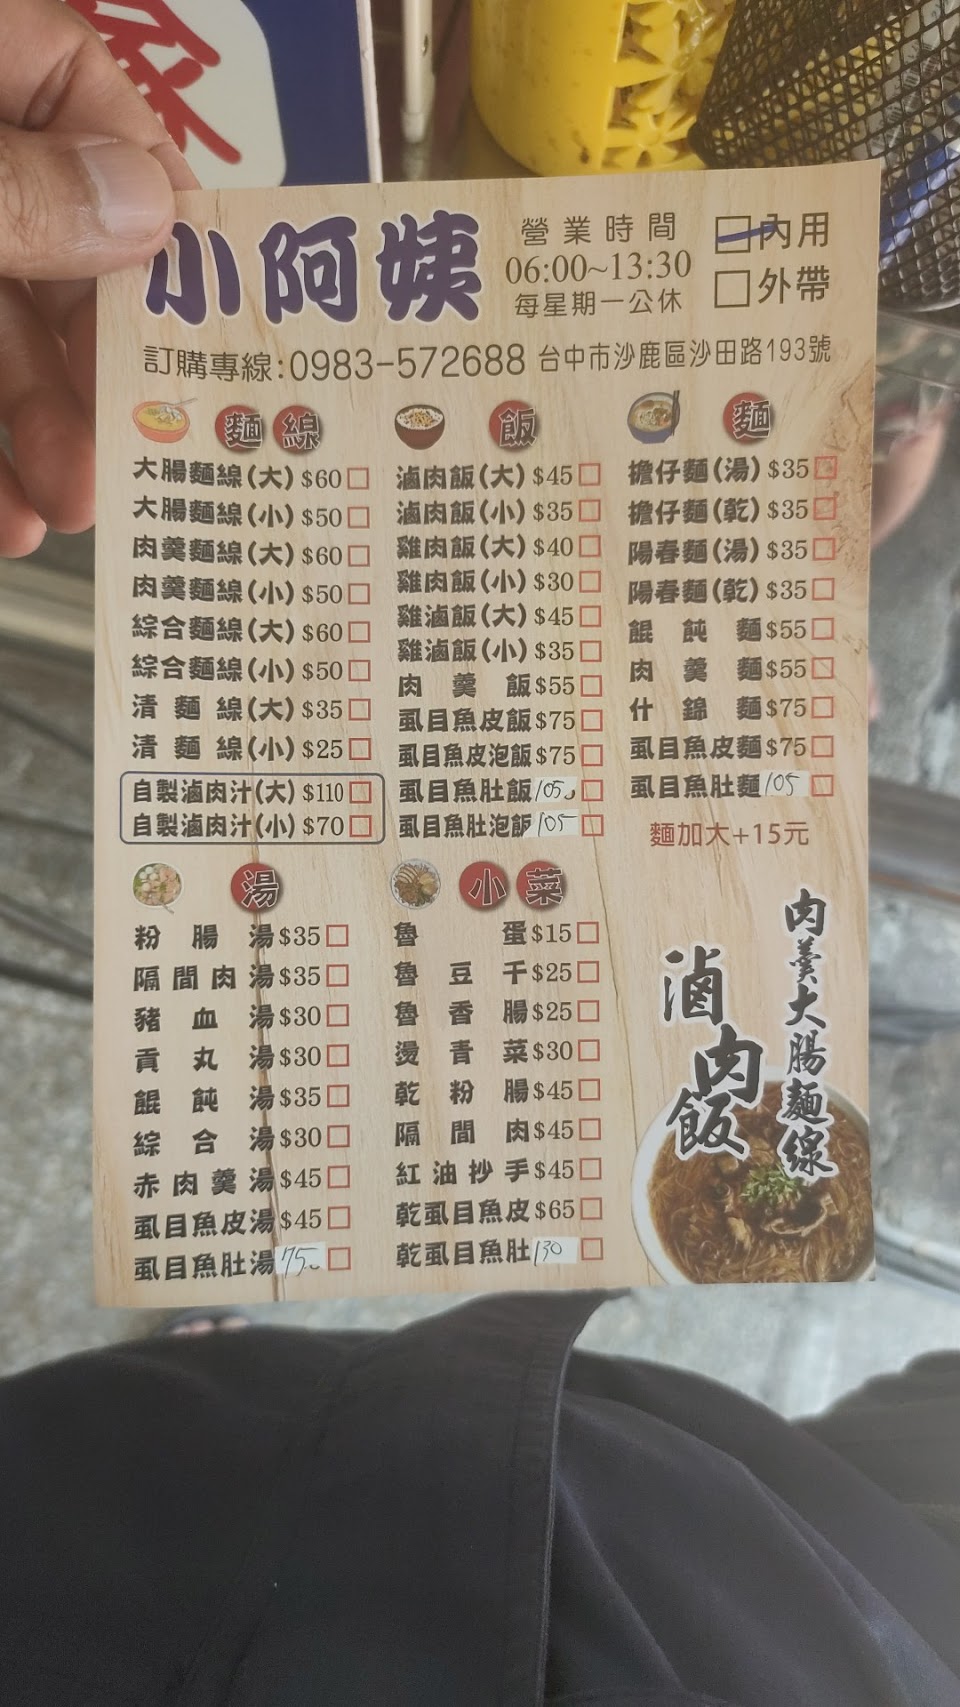 家
小阿姨
營業時間
06:00~13:30
每星期一公休
內用
外帶
訂購專線:0983-572688
台中市沙鹿區沙田路193號
麵線
大腸麵線(大) $60
大腸麵線(小) $50
肉羹麵線(大) $60
肉羹麵線(小) $50
綜合麵線(大) $60
綜合麵線(小) $50
清麵線(大) $35
清麵線(小) $25
自製滷肉汁(大) $110
自製滷肉汁(小) $70
飯
滷肉飯(大) $45
滷肉飯(小) $35
雞肉飯(大) $40
雞肉飯(小) $30
雞滷飯(大) $45
雞滷飯(小) $35
肉羹飯 $55
虱目魚皮飯 $75
虱目魚皮泡飯 $75
虱目魚肚飯 105
虱目魚肚泡飯 105
麵
擔仔麵(湯) $35
擔仔麵(乾) $35
陽春麵(湯) $35
陽春麵(乾) $35
餛飩麵 $55
肉羹麵 $55
什錦麵 $75
虱目魚皮麵 $75
虱目魚肚麵 105
麵加大+15元
湯
粉腸湯 $35
隔間肉湯 $35
豬血湯 $30
貢丸湯 $30
餛飩湯 $35
綜合湯 $30
赤肉羹湯 $45
虱目魚皮湯 $45
虱目魚肚湯 75
小菜
魯蛋 $15
魯豆干 $25
魯香腸 $25
燙青菜 $30
乾粉腸 $45
隔間肉 $45
紅油抄手 $45
乾虱目魚皮 $65
乾虱目魚肚 130
肉羹大腸麵線
滷肉飯